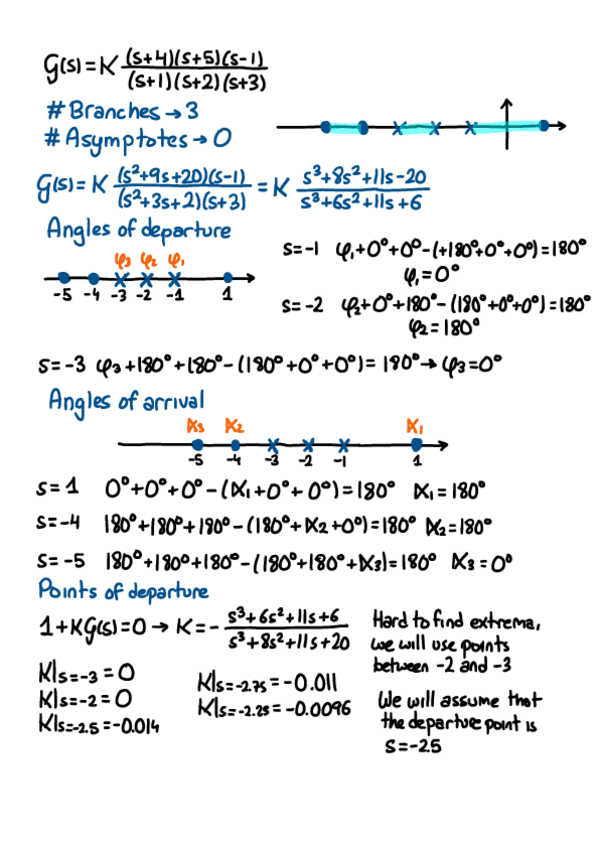 G(s) = K (s+4)(s+5)(s-1) / (s+1)(s+2)(s+3)
# Branches → 3
# Asymptotes → 0
G(s) = K (s²+9s+20)(s-1) / (s²+3s+2)(s+3) = K s³+8s²+11s-20 / s³+6s²+11s+6
Angles of departure
φ3 φ2 φ1
-5 -4 -3 -2 -1 1
s=-1 φ1+0°+0°-(+180°+0°+0°)=180°
φ1=0°
s=-2 φ2+0°+180°-(180°+0°+0°)=180°
φ2=180°
s=-3 φ3+180°+180°-(180°+0°+0°)=180°→φ3=0°
Angles of arrival
α3 α2 α1
-5 -4 -3 -2 -1 1
s=1 0°+0°+0°-(α1+0°+0°)=180° α1=180°
s=-4 180°+180°+180°-(180°+α2+0°)=180° α2=180°
s=-5 180°+180°+180°-(180°+180°+α3)=180° α3=0°
Points of departure
1+KG(s)=0 → K=- s³+6s²+11s+6 / s³+8s²+11s+20
Hard to find extrema,
we will use points
between -2 and -3
K|s=-3 = 0
K|s=-2 = 0
K|s=-2.5 = -0.014
K|s=-2.75 = -0.011
K|s=-2.25 = -0.0096
We will assume that
the departure point is
s=-2.5